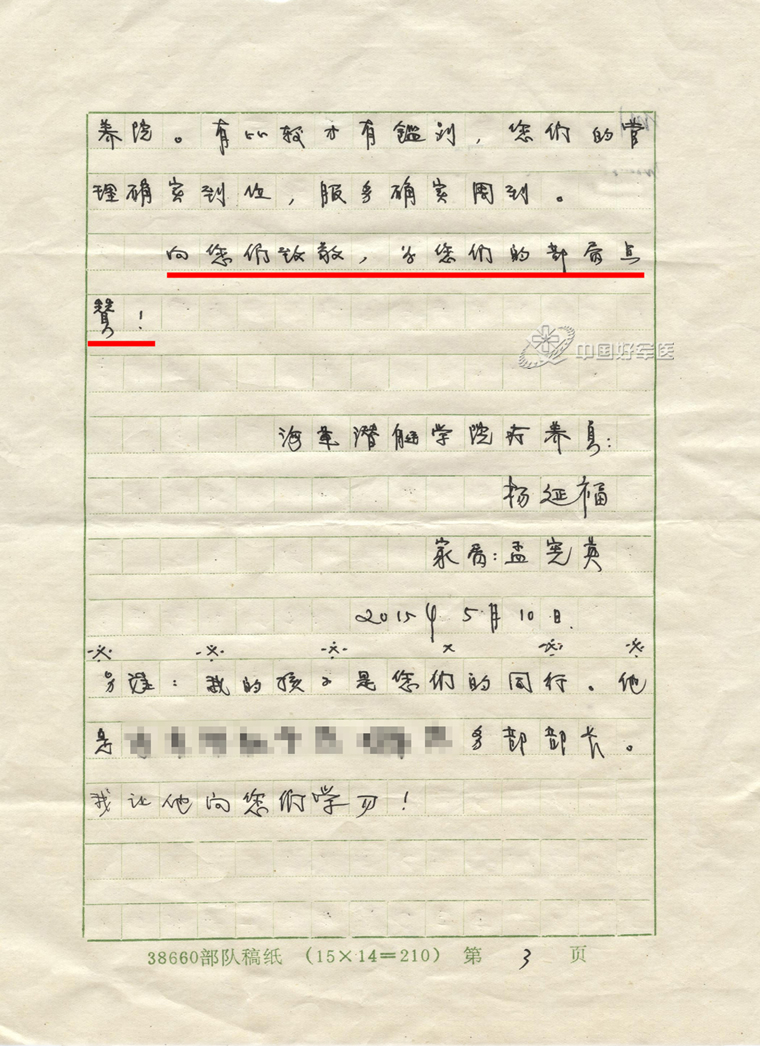 养院。有比较才有鑑别，您们的管
理确实到位，服务确实周到。
向您们致敬，为您们的部属点
赞！
中国好军医
海军潜艇学院疗养员：
杨延福
家属：孟宪英
2015年5月10日.
另逹：我的孩子是您们的同行。他
是 务部部长。
我让他向您们学习！
38660部队稿纸 (15×14=210) 第 3 页